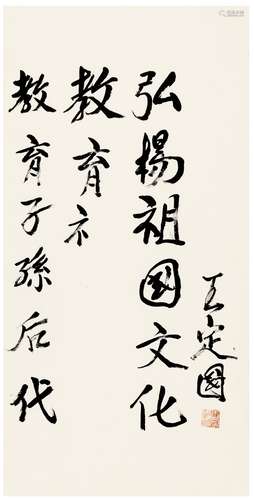 王定國
弘楊祖國文化
教育
教育子孫后代